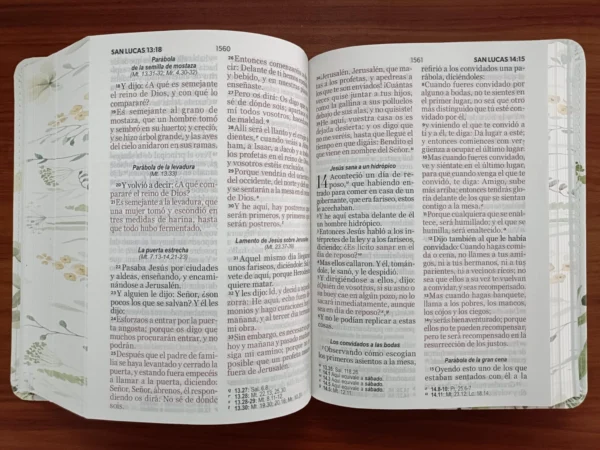 SAN LUCAS 13:18
1560
Parábola
de la semilla de mostaza
(Mt. 13.31-32; Mr. 4.30-32)
18 Y dijo: ¿A qué es semejante
el reino de Dios, y con qué lo
compararé?
19 Es semejante al grano de
mostaza, que un hombre tomó
y sembró en su huerto; y creció,
y se hizo árbol grande, y las aves
del cielo anidaron en sus ramas.
Parábola de la levadura
(Mt. 13.33)
20 Y volvió a decir: ¿A qué compararé
el reino de Dios?
21 Es semejante a la levadura, que
una mujer tomó y escondió en
tres medidas de harina, hasta
que todo hubo fermentado.
La puerta estrecha
(Mt. 7.13-14,21-23)
22 Pasaba Jesús por ciudades
y aldeas, enseñando, y encaminándose
a Jerusalén.
23 Y alguien le dijo: Señor, ¿son
pocos los que se salvan? Y él les
dijo:
24 Esforzaos a entrar por la puerta
angosta; porque os digo que
muchos procurarán entrar, y no
podrán.
25 Después que el padre de familia
se haya levantado y cerrado la
puerta, y estando fuera empecéis
a llamar a la puerta, diciendo:
Señor, Señor, ábrenos, él respondiendo
os dirá: No sé de dónde
26 Entonces
cir: Delante de ti hemos
y bebido, y en nuestras
enseñaste.
27 Pero os dirá: Os digo
sé de dónde sois; apartaos
mí todos vosotros,
de maldad.
28 Allí será el llanto y el
dientes, cuando
ham, a Isaac, a Jacob
los profetas en el reino
y vosotros estéis
29 Porque vendrán del
del occidente, del norte y del
y se sentarán a la mesa
de Dios.
30 Y he aquí, hay postreros
serán primeros, y
serán postreros.
Lamento de Jesús sobre Jerusalén
(Mt. 23.37-39)
31 Aquel mismo día llegaron
unos fariseos, diciéndole:
vete de aquí, porque Herodes
quiere matar.
32 Y les dijo: Id, y decid a
zorra: He aquí, echo fuera
monios y hago curaciones
mañana, y al tercer día
mi obra.
33 Sin embargo, es necesario
hoy y mañana y pasado
siga mi camino; porque
posible que un profeta
fuera de Jerusalén.
1561
SAN LUCAS 14:15
34 ¡Jerusalén, Jerusalén, que matas
a los profetas, y apedreas
a los que te son enviados! ¡Cuántas
veces quise juntar a tus hijos,
como la gallina a sus polluelos
debajo de sus alas, y no quisiste!
35 He aquí, vuestra casa os es
dejada desierta; y os digo que
no me veréis, hasta que llegue el
tiempo en que digáis: Bendito el
que viene en nombre del Señor.
Jesús sana a un hidrópico
14 Aconteció un día de reposo,
que habiendo entrado
para comer en casa de un
gobernante, que era fariseo, estos
le acechaban.
2 Y he aquí estaba delante de él
un hombre hidrópico.
3 Entonces Jesús habló a los intérpretes
de la ley y a los fariseos,
diciendo: ¿Es lícito sanar en el
día de reposo?
4 Mas ellos callaron. Y él, tomándole,
le sanó, y le despidió.
5 Y dirigiéndose a ellos, dijo:
¿Quién de vosotros, si su asno
o su buey cae en algún pozo, no lo
sacará inmediatamente, aunque
sea en día de reposo?
6 Y no le podían replicar a estas
cosas.
Los convidados a las bodas
7 Observando cómo escogían
los primeros asientos a la mesa,
refirió a los convidados una parábola,
diciéndoles:
8 Cuando fueres convidado por
alguno a bodas, no te sientes en
el primer lugar, no sea que otro
más distinguido que tú esté convidado
por él,
9 y viniendo el que te convidó a
ti y a él, te diga: Da lugar a este;
y entonces comiences con vergüenza
a ocupar el último lugar.
10 Mas cuando fueres convidado,
ve y siéntate en el último lugar,
para que cuando venga el que te
convidó, te diga: Amigo, sube
más arriba; entonces tendrás gloria
delante de los que se sientan
contigo a la mesa.
11 Porque cualquiera que se enaltece,
será humillado; y el que se
humilla, será enaltecido.
12 Dijo también al que le había
convidado: Cuando hagas comida
o cena, no llames a tus amigos,
ni a tus hermanos, ni a tus
parientes, ni a vecinos ricos; no
sea que ellos a su vez te vuelvan
a convidar, y seas recompensado.
13 Mas cuando hagas banquete,
llama a los pobres, los mancos,
los cojos y los ciegos;
14 y serás bienaventurado; porque
ellos no te pueden recompensar,
pero te será recompensado en la
resurrección de los justos.
Parábola de la gran cena
15 Oyendo esto uno de los que
estaban sentados con él a la